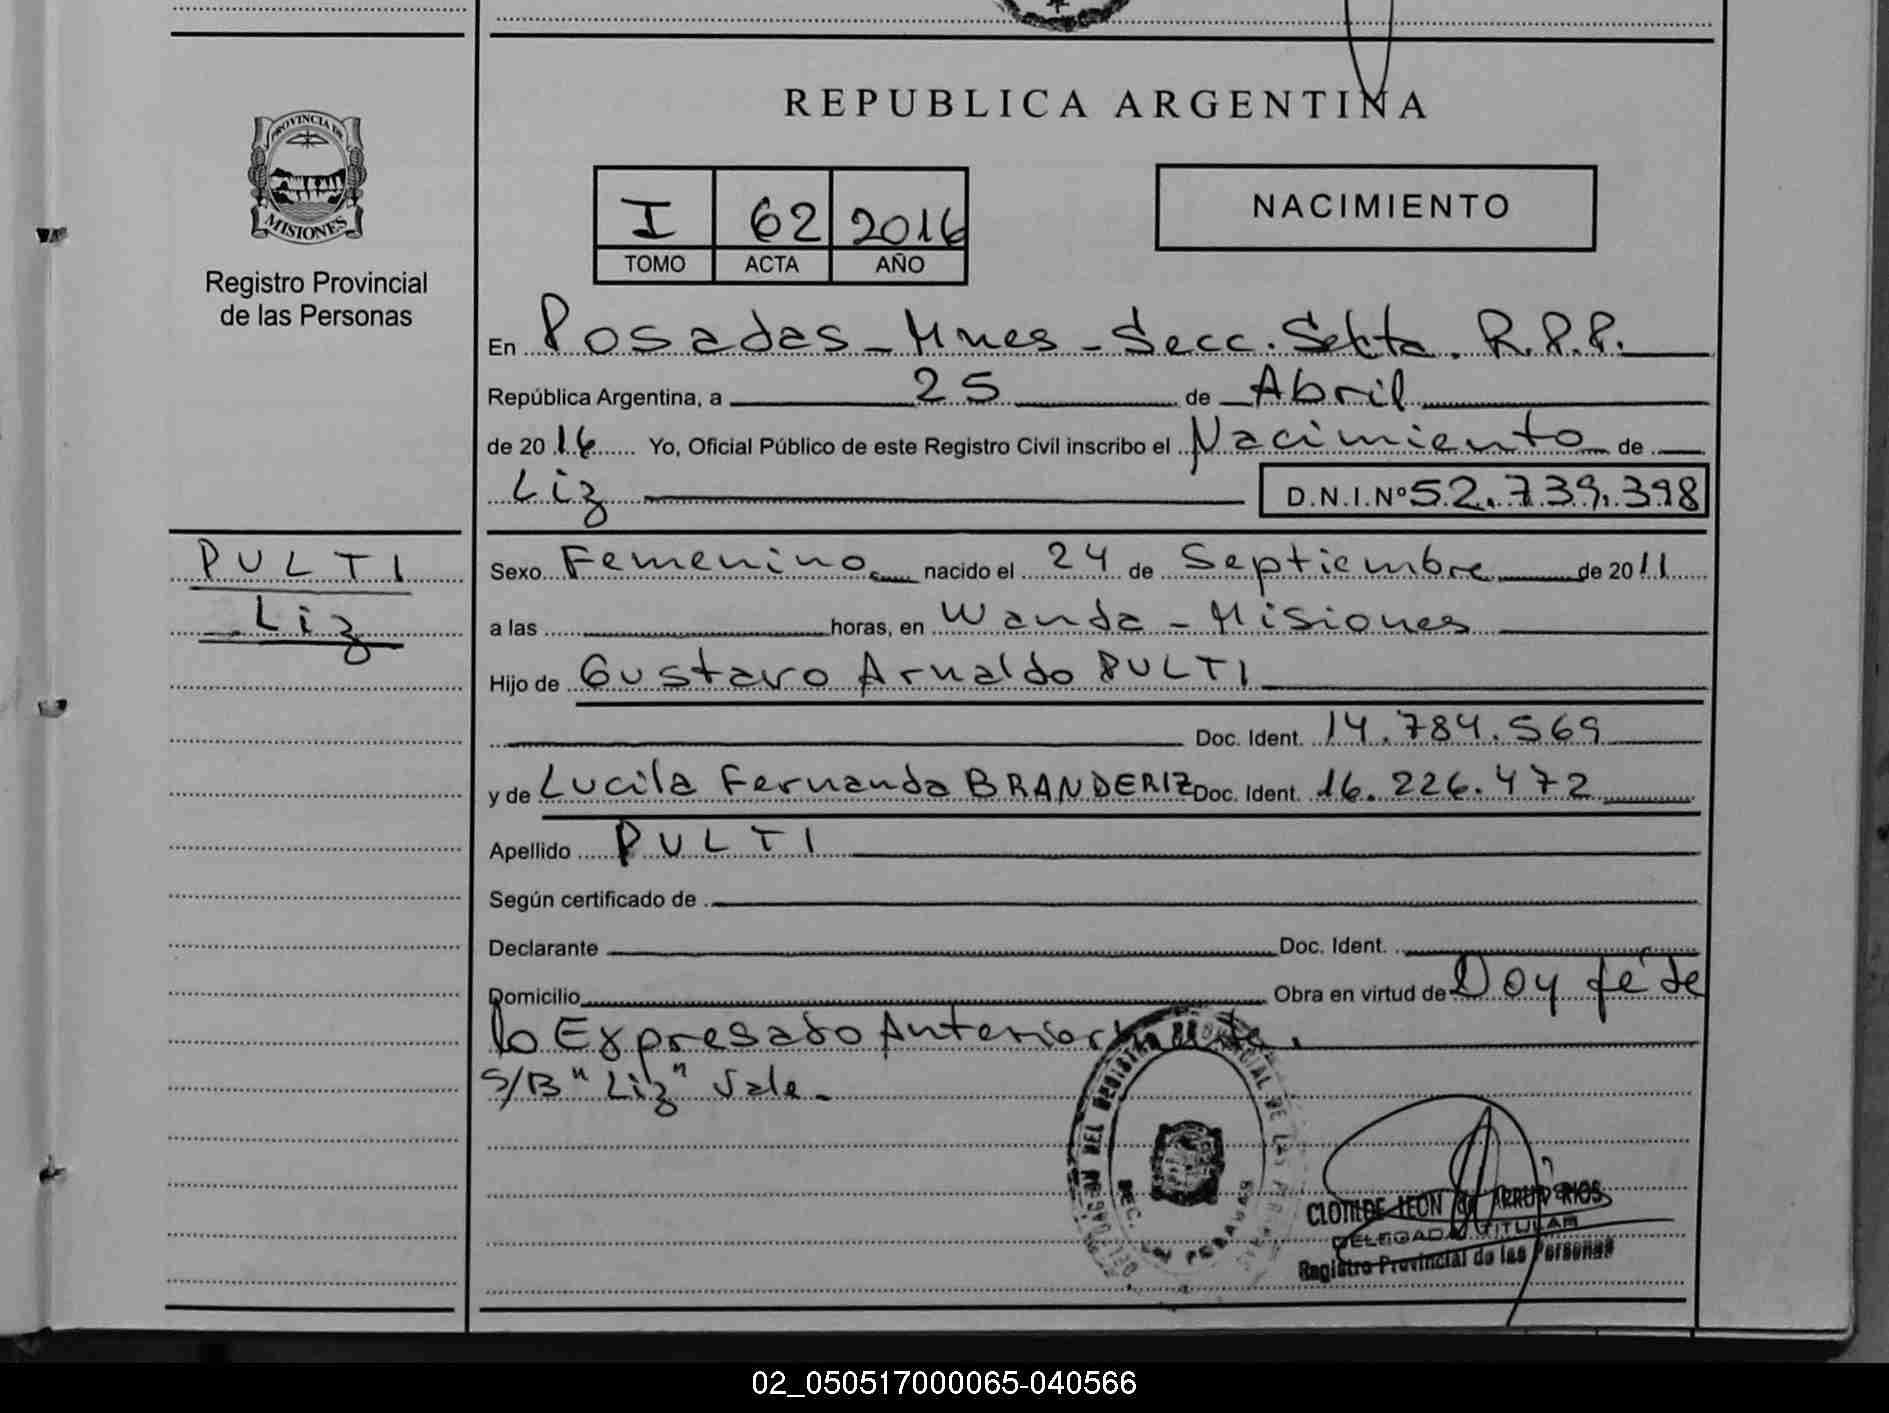 REPUBLICA ARGENTINA
PROVINCIA DE
MISIONES
Registro Provincial
de las Personas
I 62 2016
TOMO ACTA AÑO
NACIMIENTO
En Posadas - Mnes - Secc. Sekta. R.P.P.
República Argentina, a 25 de Abril
de 2016 Yo, Oficial Público de este Registro Civil inscribo el Nacimiento de
Liz D.N.I.Nº 52.739.398
PULTI
Liz
Sexo Femenino nacido el 24 de Septiembre de 2011
a las horas, en Wanda - Misiones
Hijo de Gustavo Arnaldo PULTI
Doc. Ident. 14.784.569
y de Lucila Fernanda BRANDERIZ Doc. Ident. 16.226.472
Apellido PULTI
Según certificado de
Declarante Doc. Ident.
Domicilio Obra en virtud de Doy fé de
lo Expresado Anteriormente.
S/B "Liz" Vale.
CLOTILDE LEON RIOS
DELEGADA TITULAR
Registro Provincial de las Personas
02_050517000065-040566